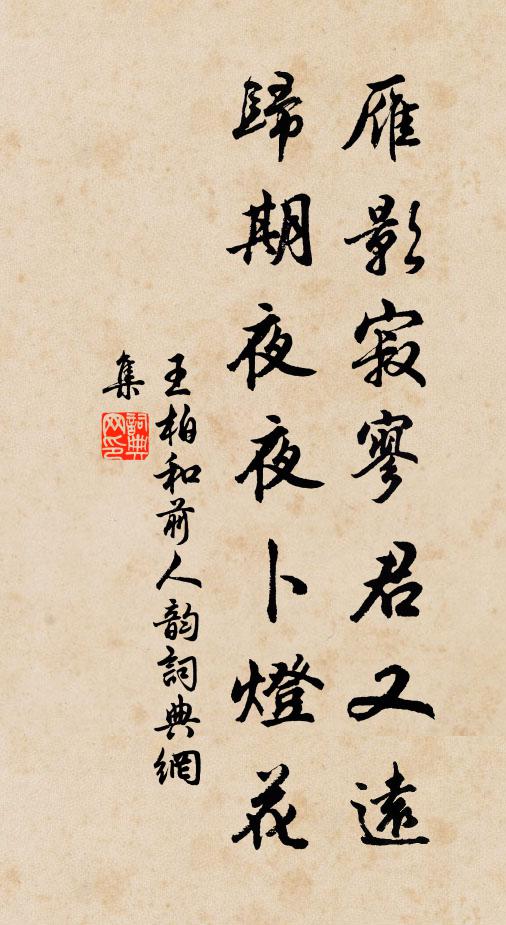 雁影寂寥君又遠
歸期夜夜卜燈花
王柏和前人韵詞典網
集
詞典
网印